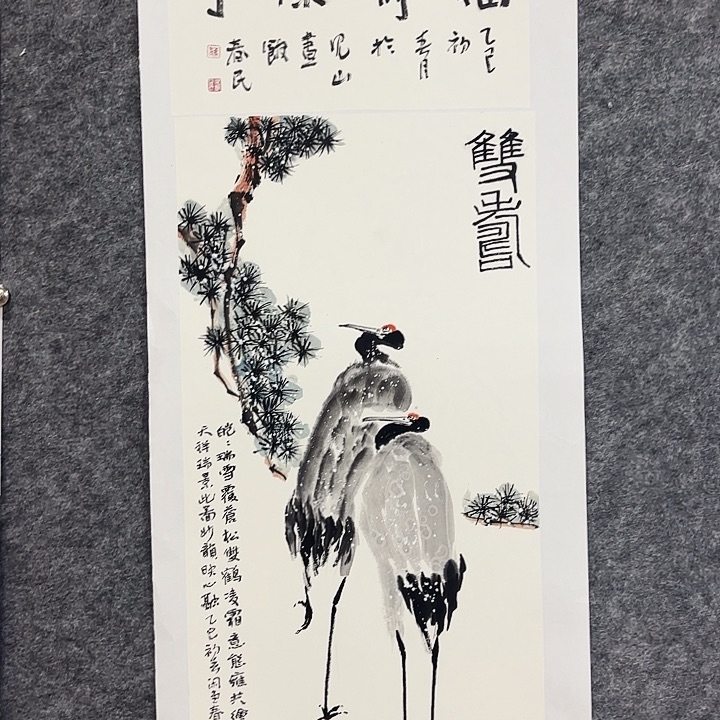 乙巳
初
春月
於
见山
畫
廠
春民
雙壽
皚〻瑞雪覆蒼松雙鶴凌霜意態雍共繪
天祥瑞景此圖妙韻映心聽乙巳初春